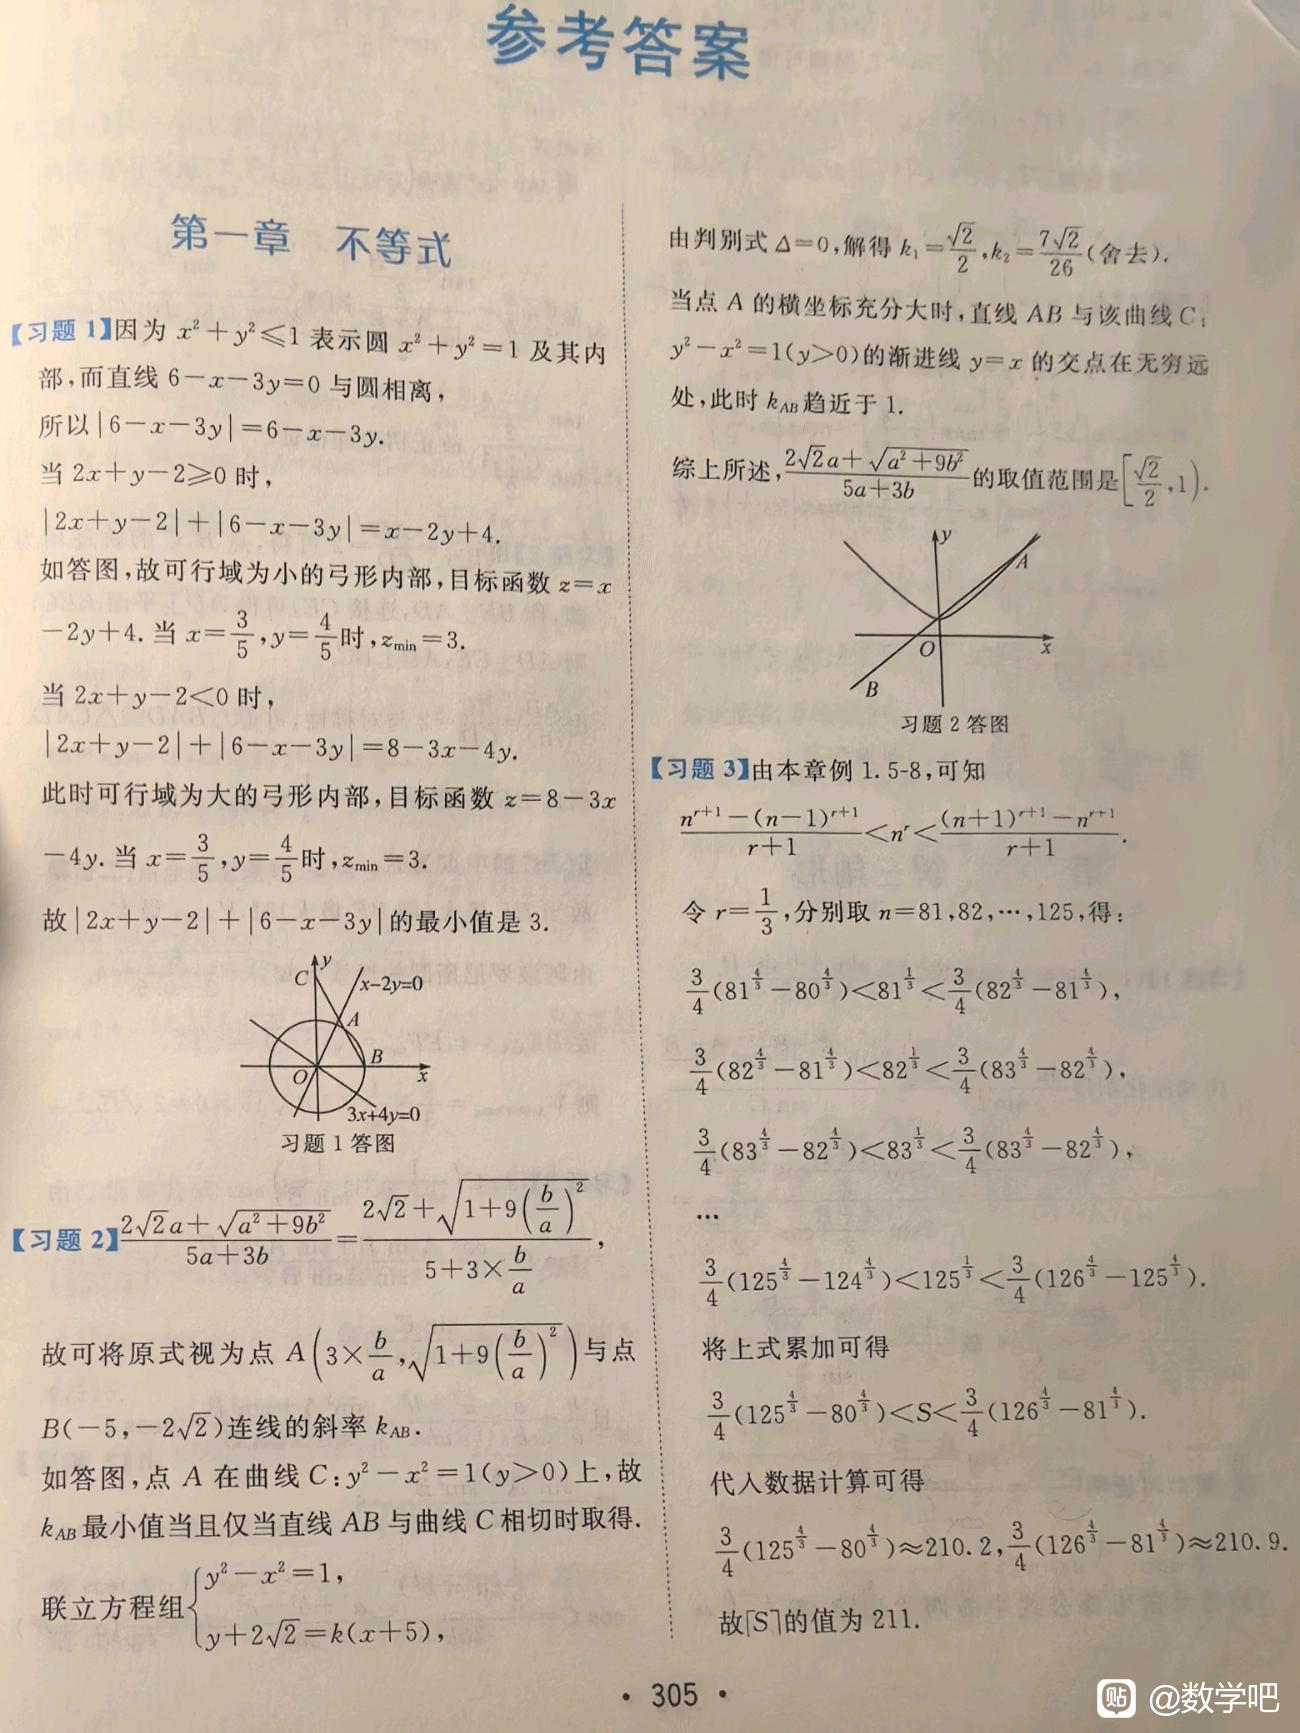 参考答案
第一章 不等式
【习题 1】因为 x²+y²≤1 表示圆 x²+y²=1 及其内
部,而直线 6-x-3y=0 与圆相离,
所以|6-x-3y|=6-x-3y.
当 2x+y-2≥0 时,
|2x+y-2|+|6-x-3y|=x-2y+4.
如答图,故可行域为小的弓形内部,目标函数 z=x
-2y+4. 当 x=3/5,y=4/5时,z_min=3.
当 2x+y-2<0 时,
|2x+y-2|+|6-x-3y|=8-3x-4y.
此时可行域为大的弓形内部,目标函数 z=8-3x
-4y. 当 x=3/5,y=4/5时,z_min=3.
故|2x+y-2|+|6-x-3y|的最小值是 3.
C y x-2y=0
A
B
O x
3x+4y=0
习题 1 答图
【习题 2】(2√2a+√(a²+9b²))/(5a+3b)=(2√2+√(1+9(b/a)²))/(5+3×b/a),
故可将原式视为点 A(3×b/a,√(1+9(b/a)²))与点
B(-5,-2√2)连线的斜率 k_AB.
如答图,点 A 在曲线 C:y²-x²=1(y>0)上,故
k_AB最小值当且仅当直线 AB 与曲线 C 相切时取得.
联立方程组{y²-x²=1,
y+2√2=k(x+5),
由判别式 Δ=0,解得 k₁=√2/2,k₂=7√2/26(舍去).
当点 A 的横坐标充分大时,直线 AB 与该曲线 C:
y²-x²=1(y>0)的渐进线 y=x 的交点在无穷远
处,此时 k_AB趋近于 1.
综上所述,(2√2a+√(a²+9b²))/(5a+3b)的取值范围是[√2/2,1).
y
A
O x
B
习题 2 答图
【习题 3】由本章例 1.5-8,可知
(n^(r+1)-(n-1)^(r+1))/(r+1)<n^r<((n+1)^(r+1)-n^(r+1))/(r+1).
令 r=1/3,分别取 n=81,82,…,125,得:
3/4(81^(4/3)-80^(4/3))<81^(1/3)<3/4(82^(4/3)-81^(4/3)),
3/4(82^(4/3)-81^(4/3))<82^(1/3)<3/4(83^(4/3)-82^(4/3)),
3/4(83^(4/3)-82^(4/3))<83^(1/3)<3/4(83^(4/3)-82^(4/3)),
…
3/4(125^(4/3)-124^(4/3))<125^(1/3)<3/4(126^(4/3)-125^(4/3)).
将上式累加可得
3/4(125^(4/3)-80^(4/3))<S<3/4(126^(4/3)-81^(4/3)).
代入数据计算可得
3/4(125^(4/3)-80^(4/3))≈210.2,3/4(126^(4/3)-81^(4/3))≈210.9.
故⌈S⌉的值为 211.
· 305 ·
贴 @数学吧